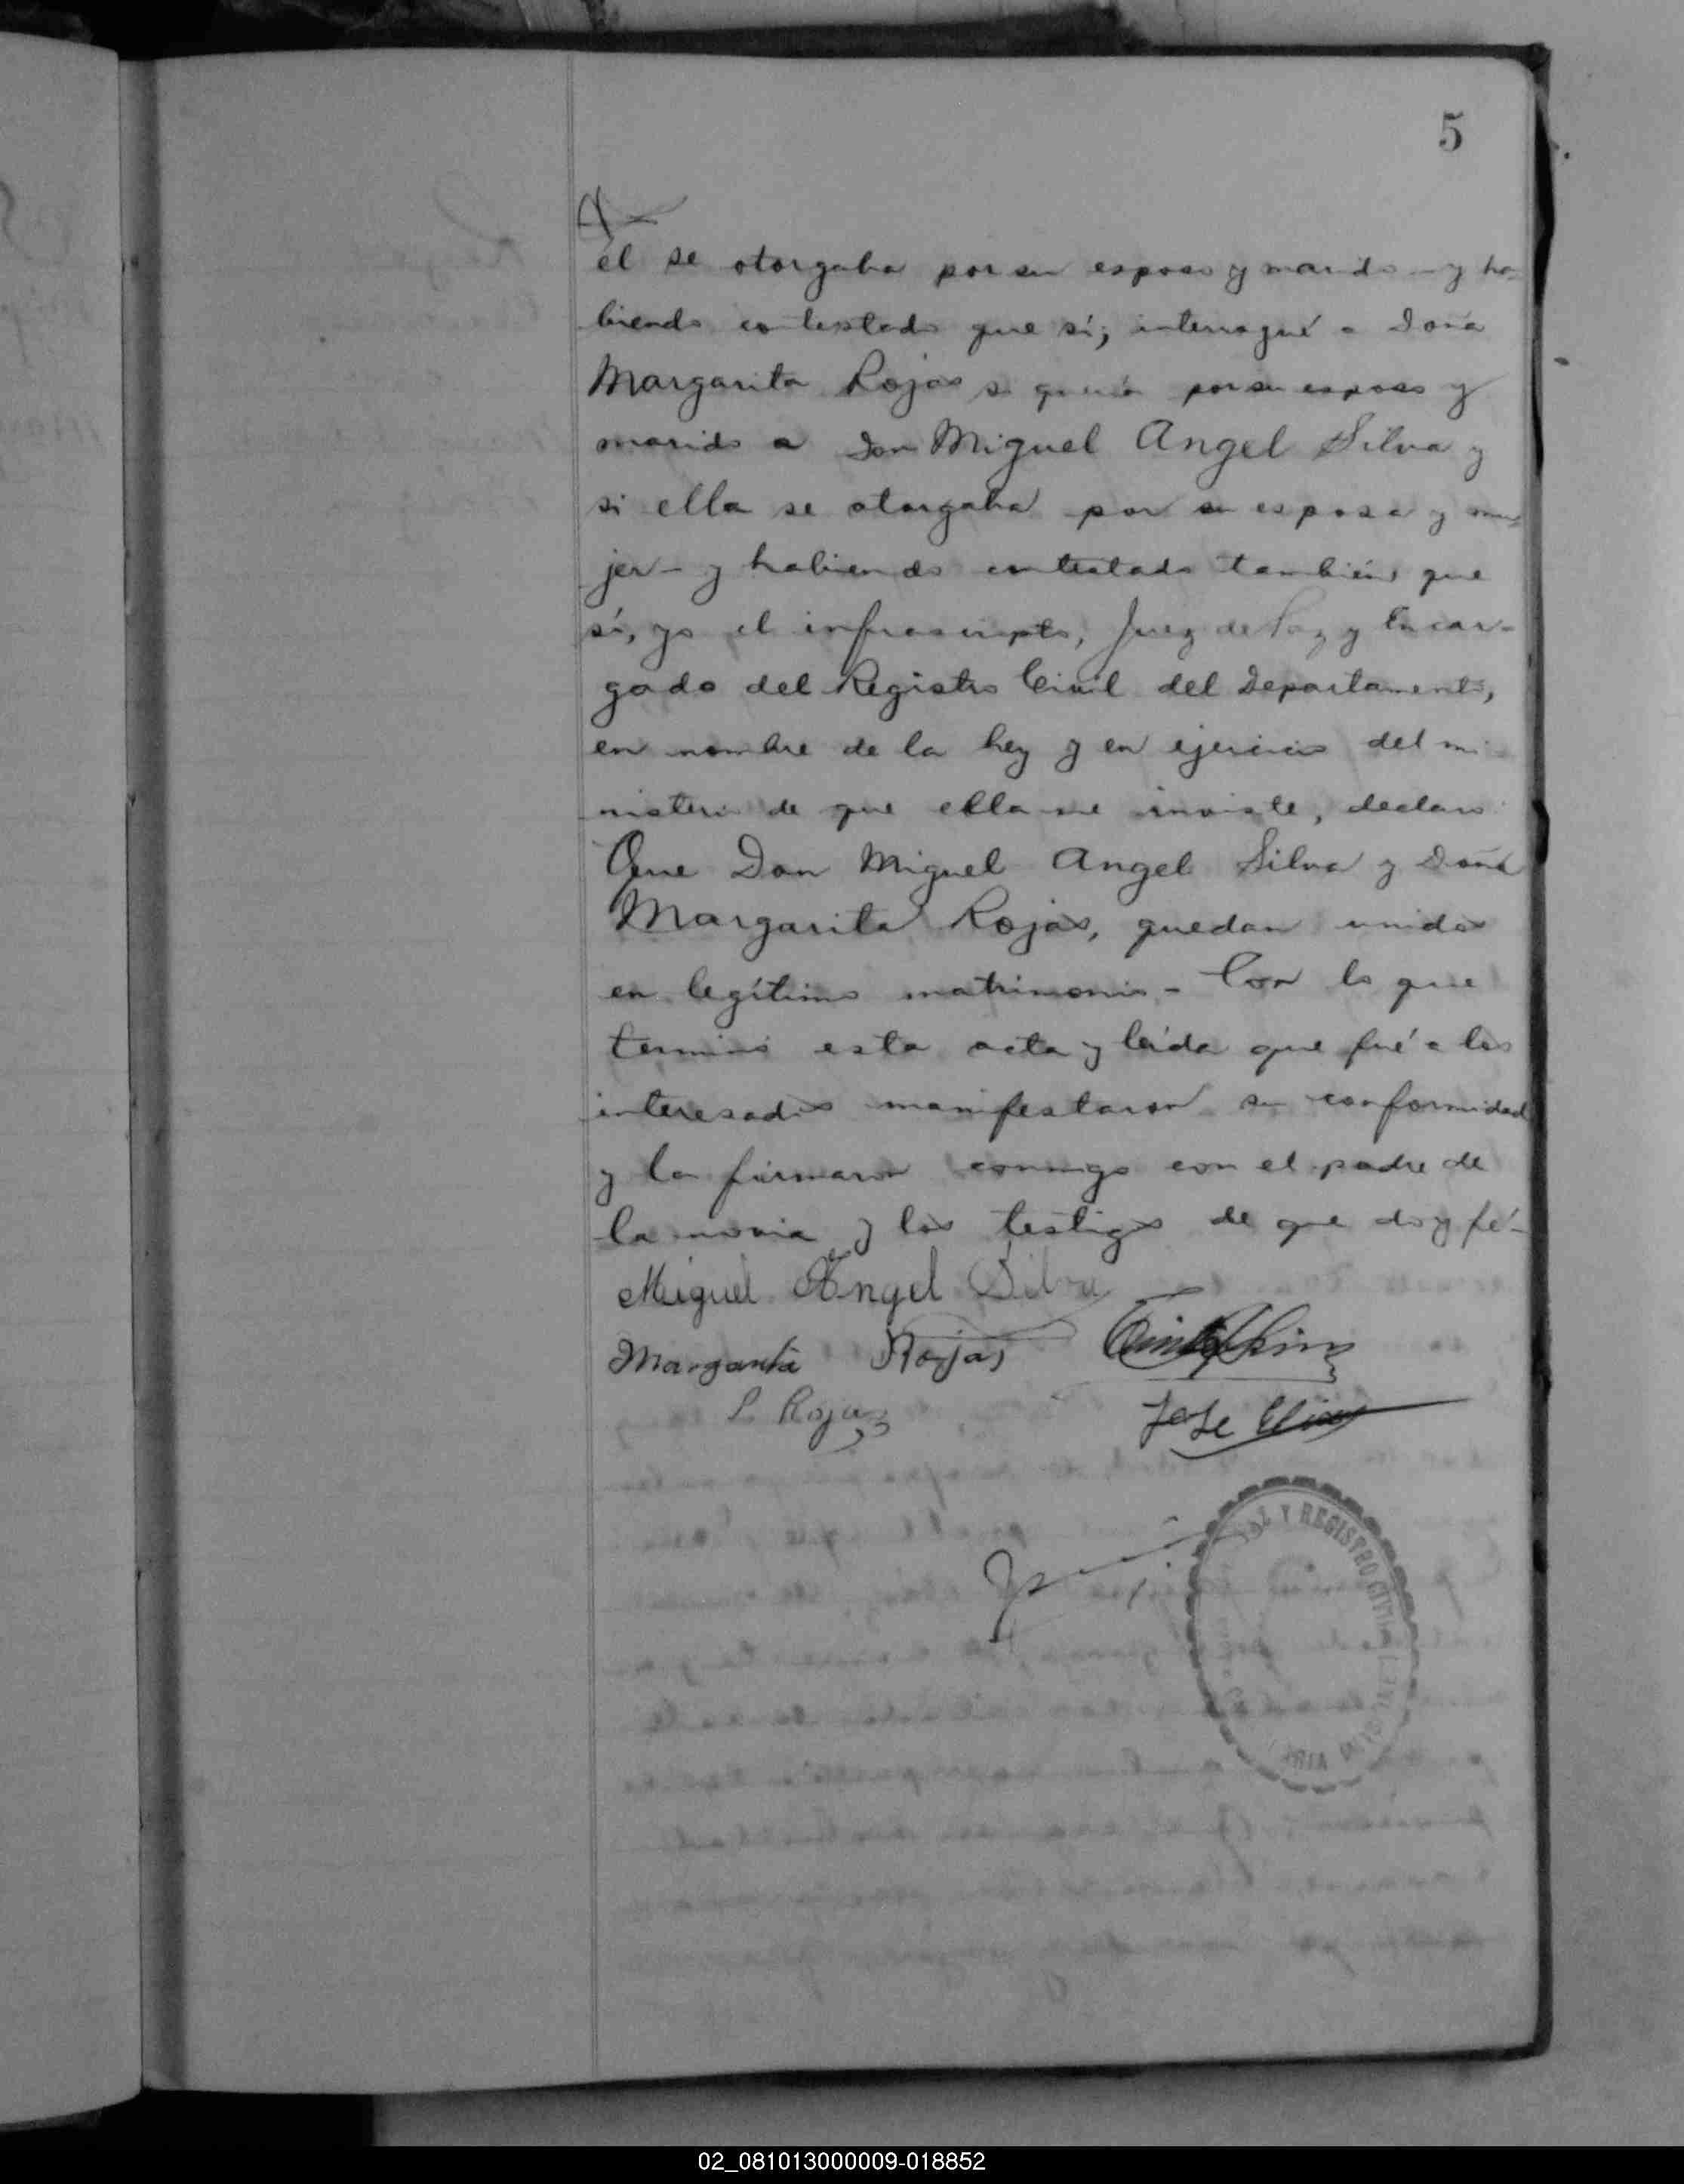 5
él se otorgaba por su esposo y marido - y ha-
biendo contestado que sí; interrogué a Doña
Margarita Rojas si quería por su esposo y
marido a Don Miguel Angel Silva y
si ella se otorgaba por su esposa y mu-
jer - y habiendo contestado también que
sí, yo el infrascripto, Juez de Paz y Encar-
gado del Registro Civil del Departamento,
en nombre de la Ley y en ejercicio del mi-
nisterio de que ella me inviste, declaro
Que Don Miguel Angel Silva y Doña
Margarita Rojas, quedan unidos
en legítimo matrimonio - Con lo que
terminó esta acta y leída que fué a los
interesados manifestaron su conformidad
y la firmaron conmigo con el padre de
la novia y los testigos de que doy fé -
Miguel Angel Silva
Margarita Rojas
L Rojas
Jose Elias
PAZ Y REGISTRO CIVIL
02_081013000009-018852